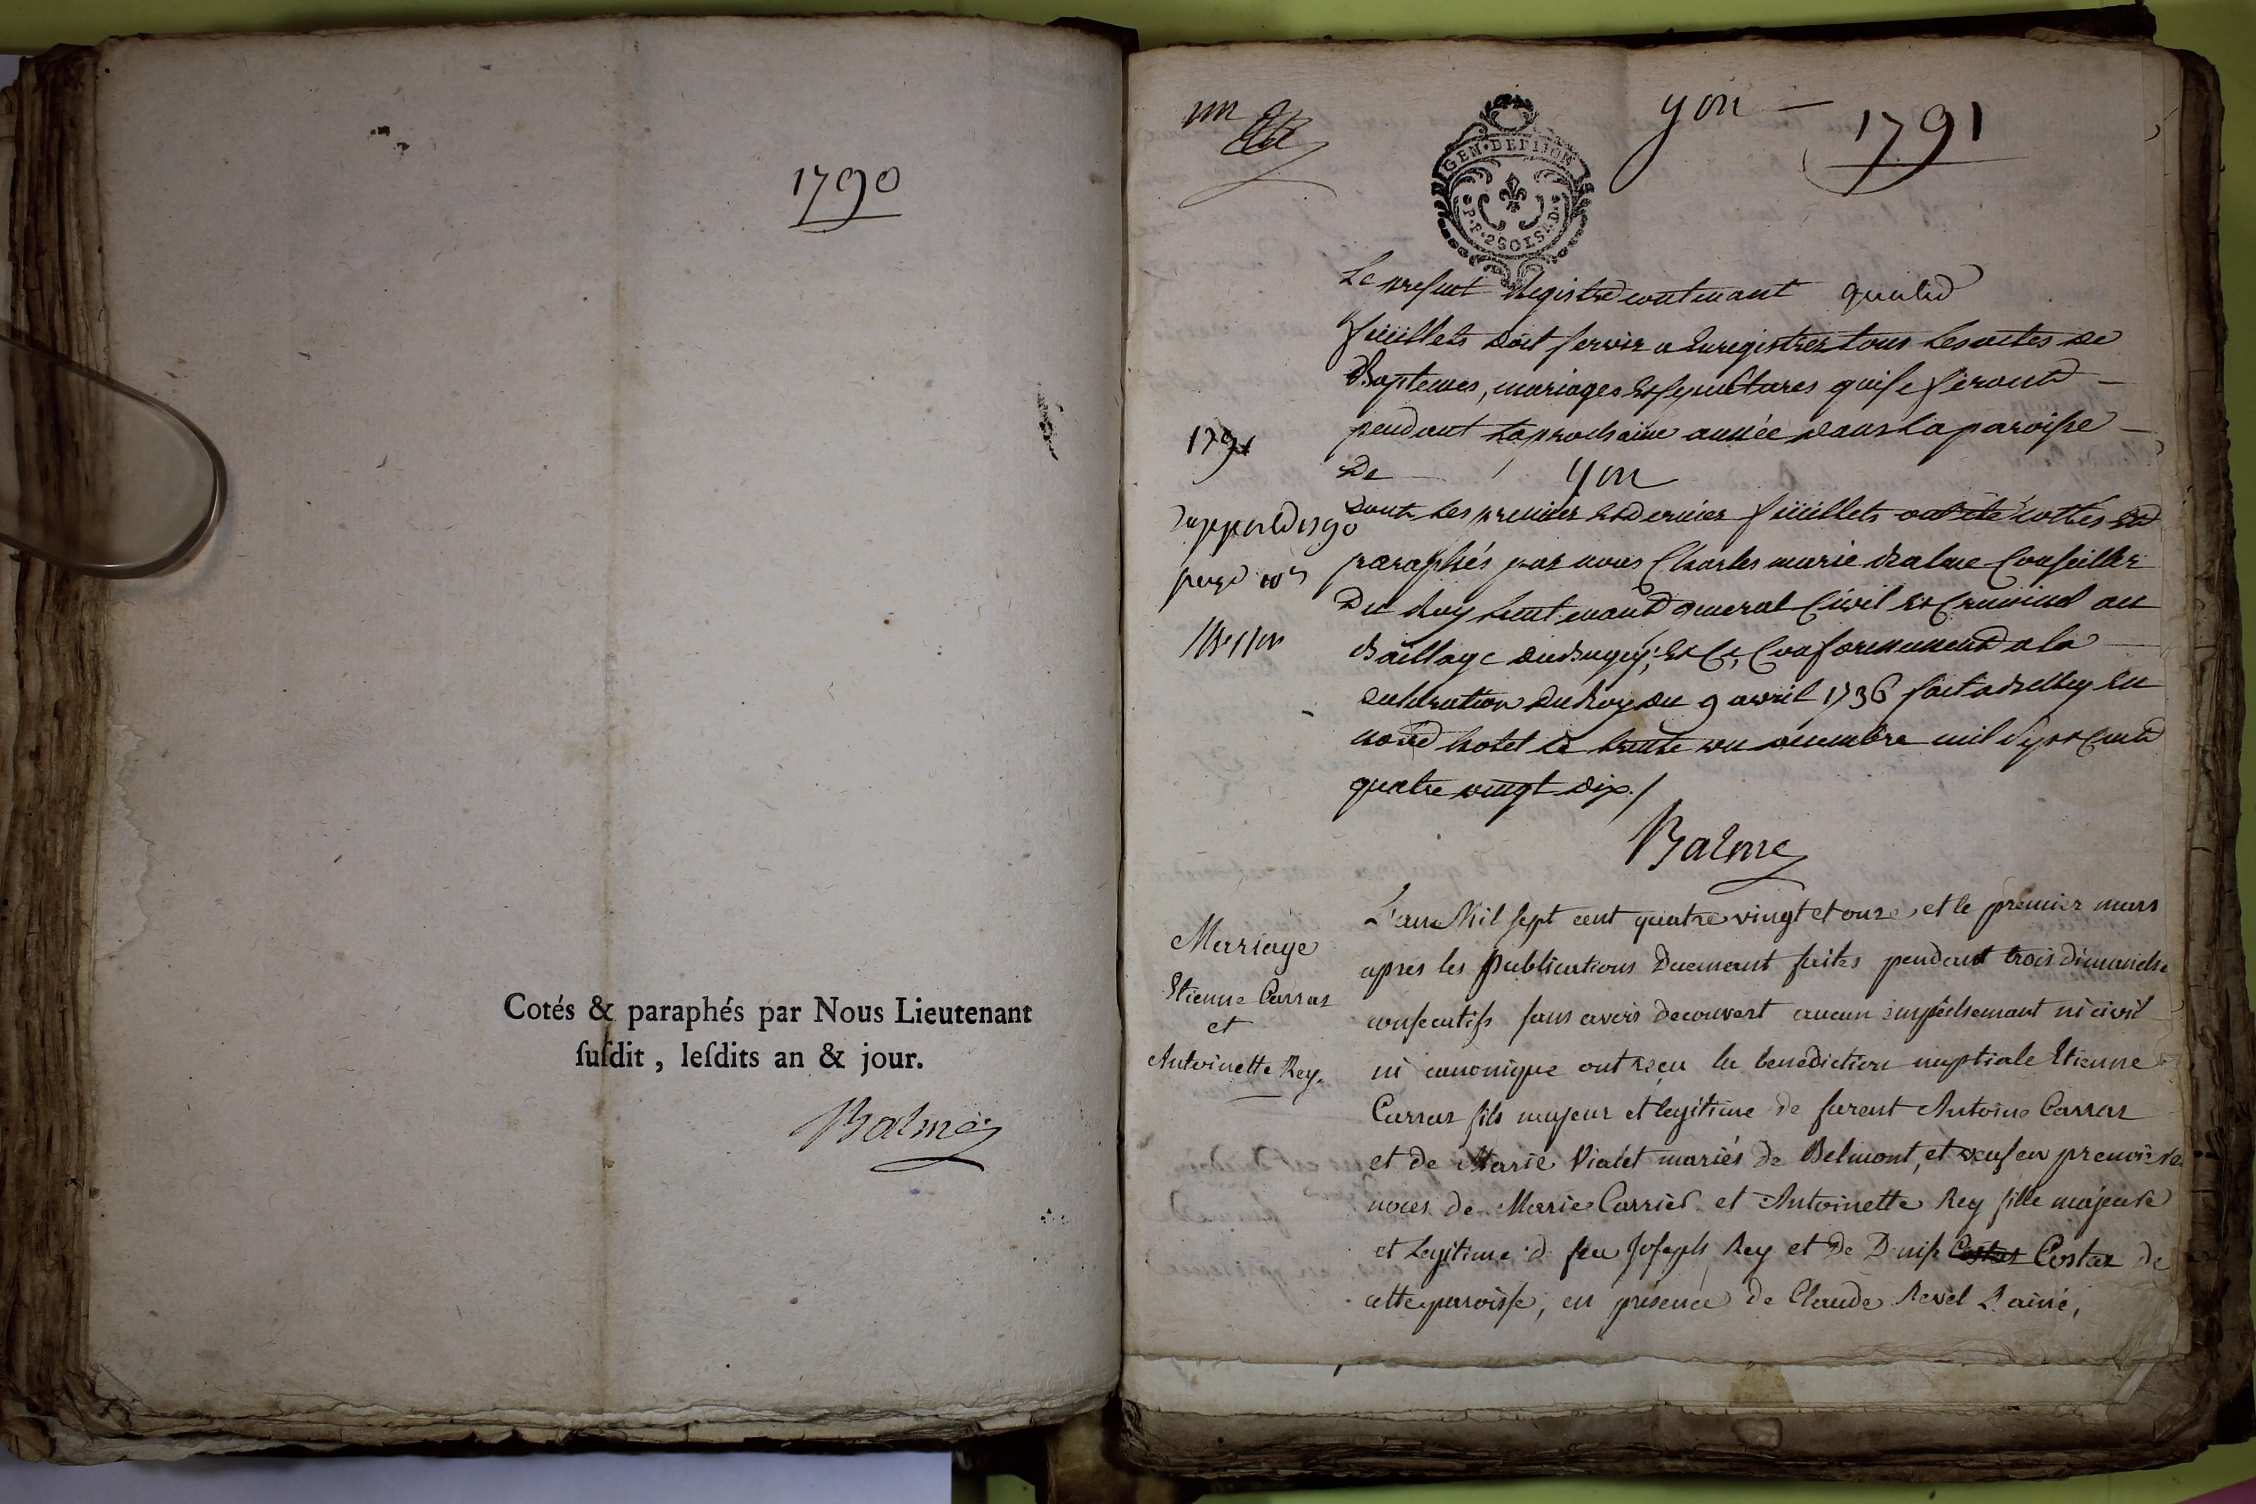 1790
Cotés & paraphés par Nous Lieutenant
ſuſdit , leſdits an & jour.
Balme
un
yon
1791
GEN·DE DIJON
P·P·2SOLS·D·
Le present Registre contenant quatre
feüillets doit servir a Enregistrer tous les actes de
Baptemes, mariages Et sepultures qui se feront
pendant la prochaine année dans la paroisse
de yon
1791
dont les premier Et dernier feüillets ont été cottés Et
paraphés par nous Charles marie Balme Conseiller
Du Roy Lieutenant general Civil Et Criminel au
Bailliage du Bugey, Et C, Conformement a la
declaration du Roy du 9 avril 1736 fait a Belley En
notre hotel le trente un decembre mil Sept Cent
quatre vingt dix./
Balme
Mariage
Etienne Carraz
et
Antoinette Rey.
L'an Mil sept cent quatre vingt et onze, et le premier mars
apres les publications duement faites pendant trois dimanche
consecutifs sans avoir decouvert aucun empêchement ni civil
ni canonique ont reçu la benediction nuptiale Etienne
Carraz fils majeur et legitime de furent Antoine Carraz
et de Marie Vialet mariés de Belmont, et veuf en premiere
noces de Marie Carrier et Antoinette Rey fille majeure
et Legitime d feu Joseph Rey et de Denise Costaz Costaz de
cette paroisse, en présence de Claude Revel L'ainé,